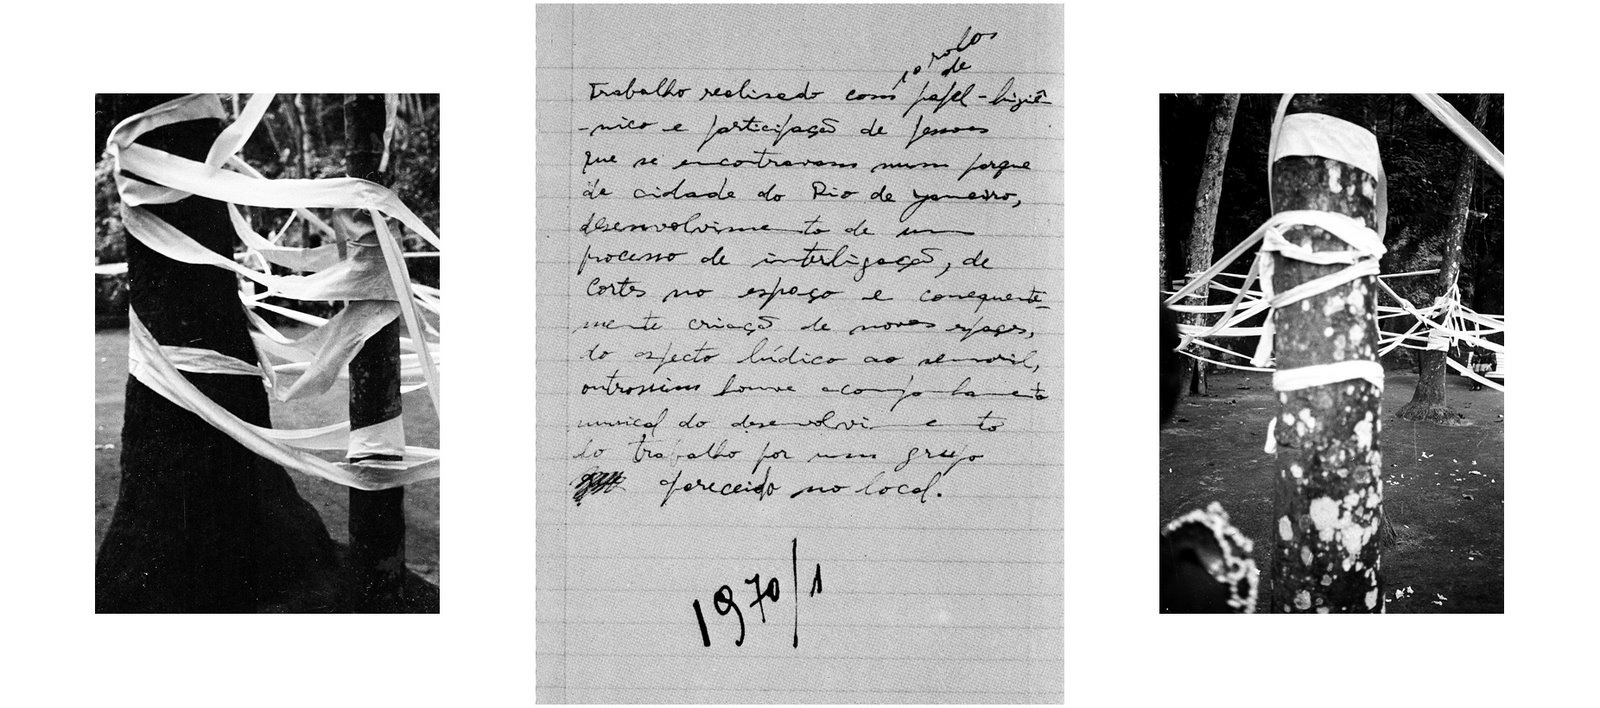 Trabalho realizado com 10 rolos de papel-higiê-
-nico e participação de pessoas
que se encontravam num parque
da cidade do Rio de Janeiro,
desenvolvimento de um
processo de interligação, de
cortes no espaço e consequente-
mente criação de novos espaços,
do aspecto lúdico ao sensorial,
outrossim houve acompanhamento
musical do desenvolvimento
do trabalho por um grupo
aparecido no local.
1970/1